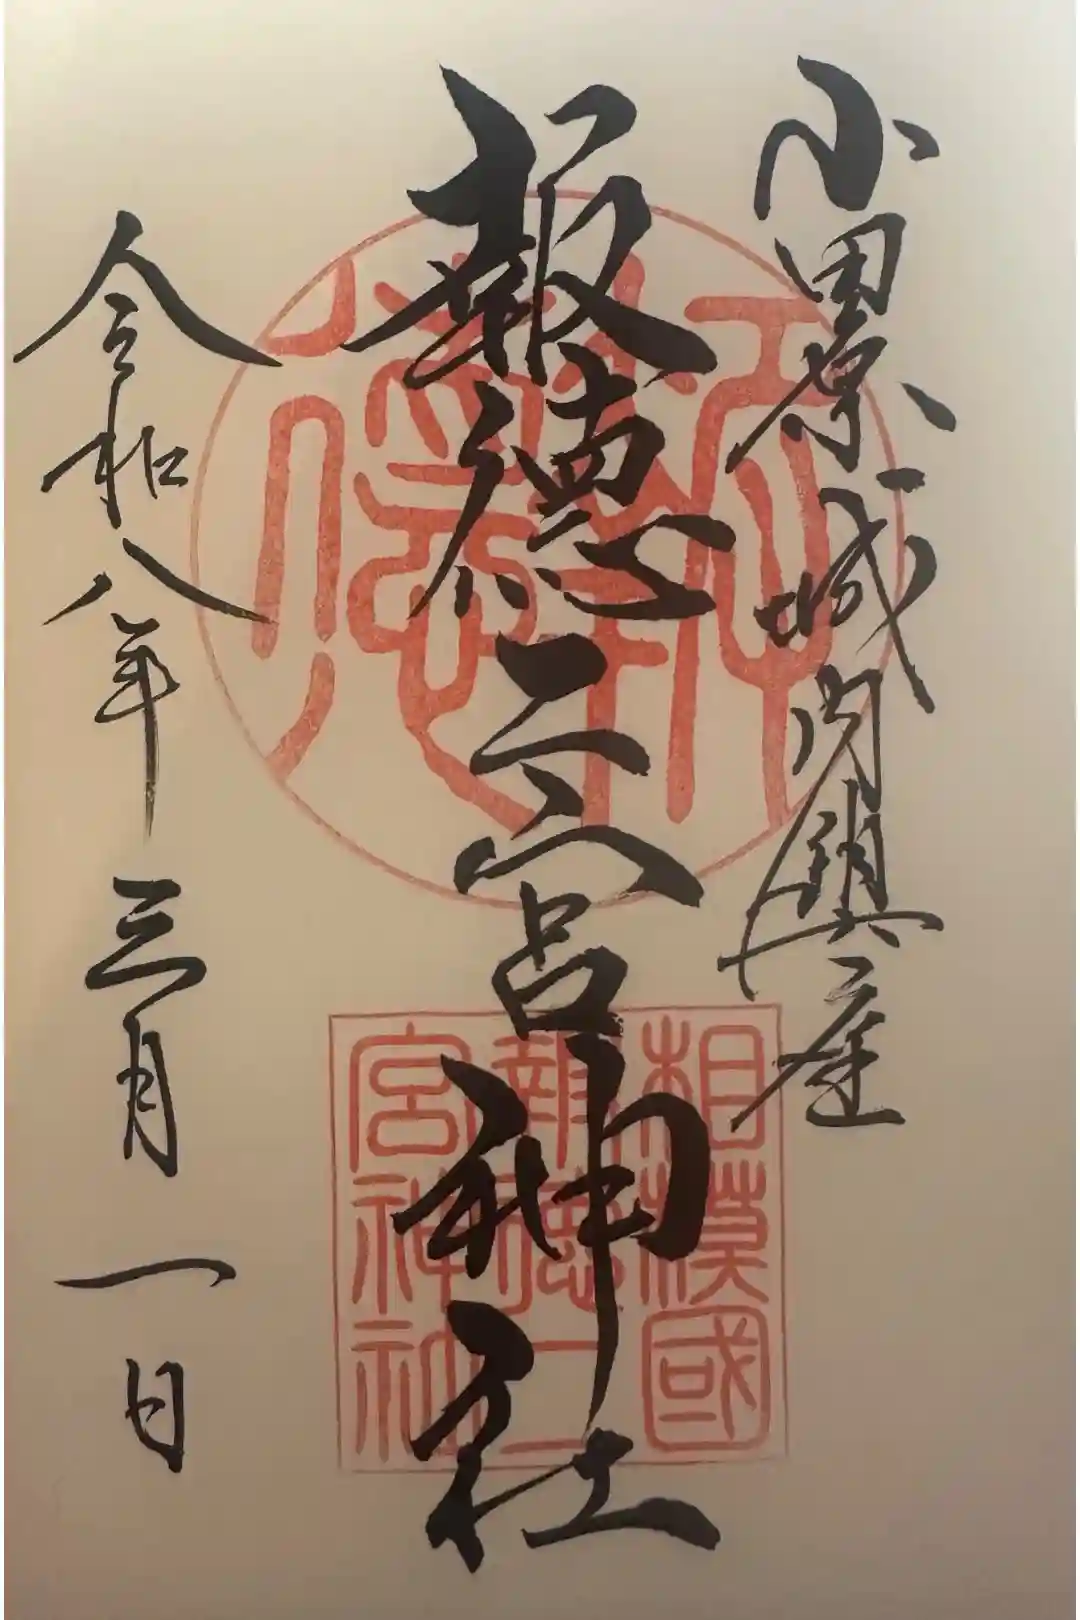 小田原城内鎮座
報徳二宮神社
令和八年三月一日
相模國
報徳二
宮神社